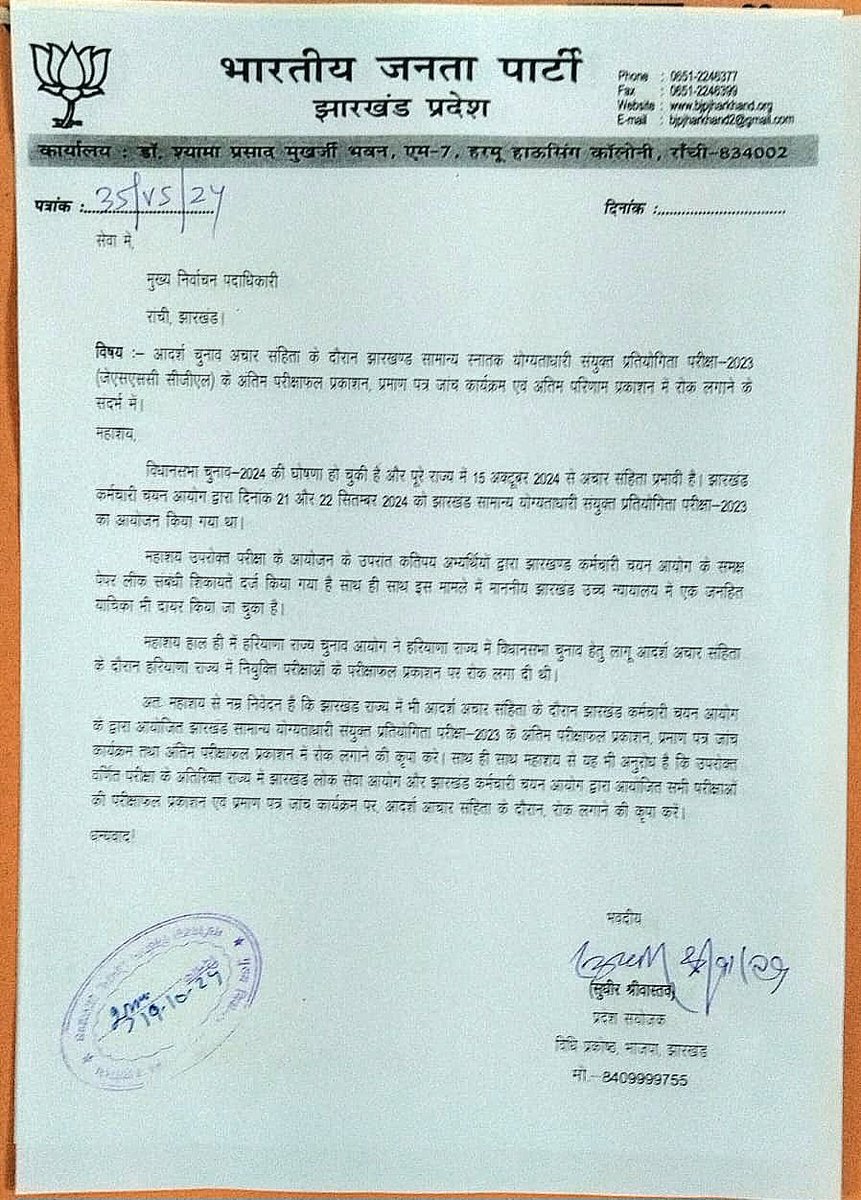 भारतीय जनता पार्टी
झारखंड प्रदेश
Phone : 0651-2246377
Fax : 0651-2246399
Website : www.bjpjharkhand.org
E-mail : bjpjharkhand2@gmail.com
कार्यालय : डॉ. श्यामा प्रसाद मुखर्जी भवन, एम-7, हरमू हाऊसिंग कॉलोनी, राँची-834002
पत्रांक :.......35/VS/24.......
दिनांक :...............................
सेवा में,
मुख्य निर्वाचन पदाधिकारी
रांची, झारखंड।
विषय :– आदर्श चुनाव अचार संहिता के दौरान झारखण्ड सामान्य स्नातक योग्यताधारी संयुक्त प्रतियोगिता परीक्षा–2023
(जेएसएससी सीजीएल) के अंतिम परीक्षाफल प्रकाशन, प्रमाण पत्र जांच कार्यक्रम एवं अंतिम परिणाम प्रकाशन में रोक लगाने के
संदर्भ में।
महाशय,
विधानसभा चुनाव–2024 की घोषणा हो चुकी है और पूरे राज्य में 15 अक्टूबर 2024 से अचार संहिता प्रभावी है। झारखंड
कर्मचारी चयन आयोग द्वारा दिनांक 21 और 22 सितम्बर 2024 को झारखंड सामान्य योग्यताधारी संयुक्त प्रतियोगिता परीक्षा–2023
का आयोजन किया गया था।
महाशय उपरोक्त परीक्षा के आयोजन के उपरांत कतिपय अभ्यर्थियों द्वारा झारखण्ड कर्मचारी चयन आयोग के समक्ष
पेपर लीक संबंधी शिकायतें दर्ज किया गया है साथ ही साथ इस मामले में माननीय झारखंड उच्च न्यायालय में एक जनहित
याचिका भी दायर किया जा चुका है।
महाशय हाल ही में हरियाणा राज्य चुनाव आयोग ने हरियाणा राज्य में विधानसभा चुनाव हेतु लागू आदर्श अचार संहिता
के दौरान हरियाणा राज्य में नियुक्ति परीक्षाओं के परीक्षाफल प्रकाशन पर रोक लगा दी थी।
अतः महाशय से नम्र निवेदन है कि झारखंड राज्य में भी आदर्श अचार संहिता के दौरान झारखंड कर्मचारी चयन आयोग
के द्वारा आयोजित झारखंड सामान्य योग्यताधारी संयुक्त प्रतियोगिता परीक्षा–2023 के अंतिम परीक्षाफल प्रकाशन, प्रमाण पत्र जांच
कार्यक्रम तथा अंतिम परीक्षाफल प्रकाशन में रोक लगाने की कृपा करें। साथ ही साथ महाशय से यह भी अनुरोध है कि उपरोक्त
वर्णित परीक्षा के अतिरिक्त राज्य में झारखंड लोक सेवा आयोग और झारखंड कर्मचारी चयन आयोग द्वारा आयोजित सभी परीक्षाओं
की परीक्षाफल प्रकाशन एवं प्रमाण पत्र जांच कार्यक्रम पर, आदर्श आचार संहिता के दौरान, रोक लगाने की कृपा करें।
धन्यवाद!
भवदीय
(सुधीर श्रीवास्तव)
प्रदेश संयोजक
विधि प्रकोष्ठ, भाजपा, झारखंड
मो.–8409999755
19.10.24